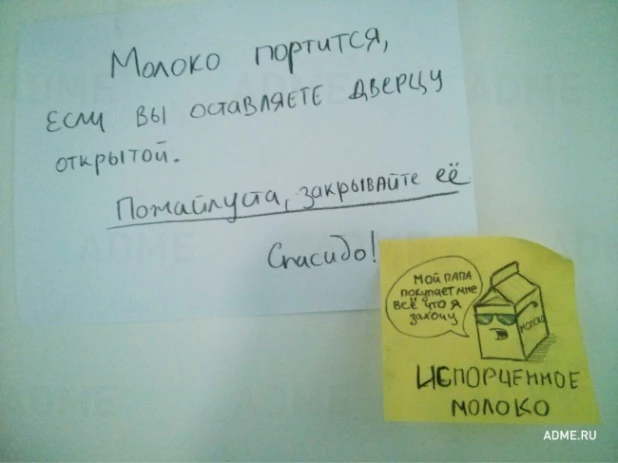 Молоко портится,
если вы оставляете дверцу
открытой.
Пожайлуста, закрывайте её
Спасибо!
Мой папа
покупает мне
всё что я
захочу
молоко
испорченное
молоко
ADME.RU